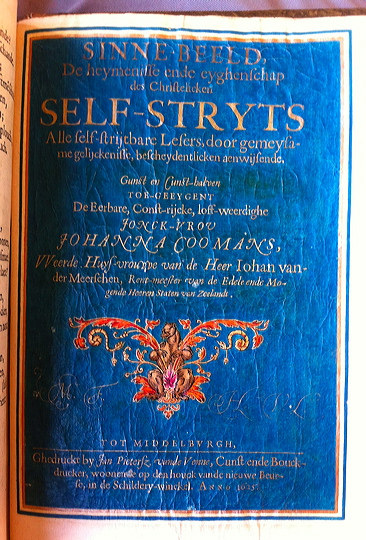 SINNE-BEELD,
De heymenisse ende eyghenschap
des Christelicken
SELF-STRYTS
Alle self-strijtbare Lesers, door gemeysa-
me gelijckenisse, bescheydentlicken aenwijsende.
Gunst en Cunst-halven
TOE-GEEYGENT
De Eerbare, Const-rijcke, loff-weerdighe
JONCK-VROU
JOHANNA COOMANS,
VVeerde Huys-vrouwe van de Heer Iohan van-
der Meerschen, Rent-meester van de Edele ende Mo-
gende Heeren Staten van Zeelandt.
TOT MIDDELBVRGH,
Ghedruckt by Jan Pietersz vande Venne, Cunst ende Bouck-
drucker, woonende op den houck vande nieuwe Beur-
se, in de Schildery-winckel. ANNO